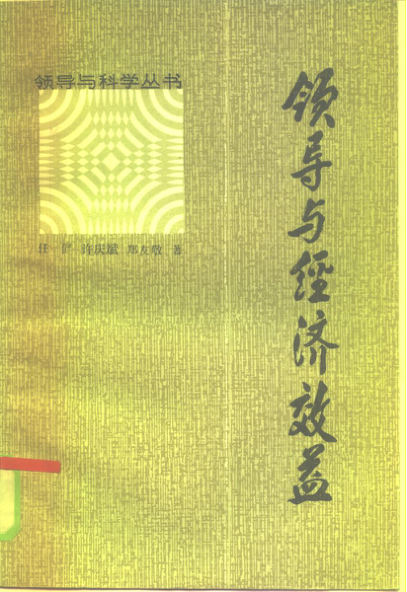 领导与科学丛书
任 许庆斌 郑友敬 著
领导与经济效益